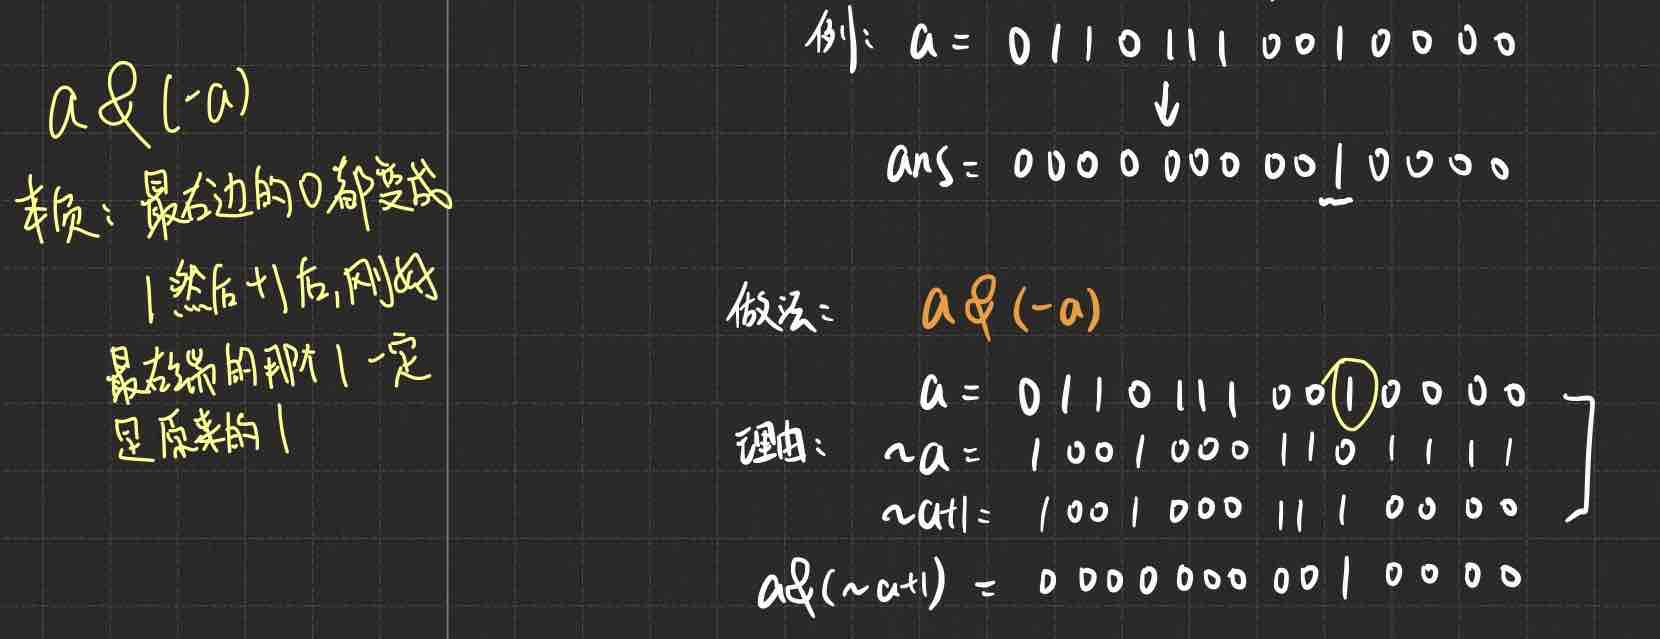 a&(-a)
本质：最右边的0都变成
1然后+1后,刚好
最右端的那个1一定
是原来的1
例: a = 0110111 0010000
↓
ans = 0000 000 0010000
做法: a&(-a)
a = 0110111 0010000
理由: ~a = 1001000 1101111
~a+1 = 1001000 1110000
a&(~a+1) = 0000000 0010000